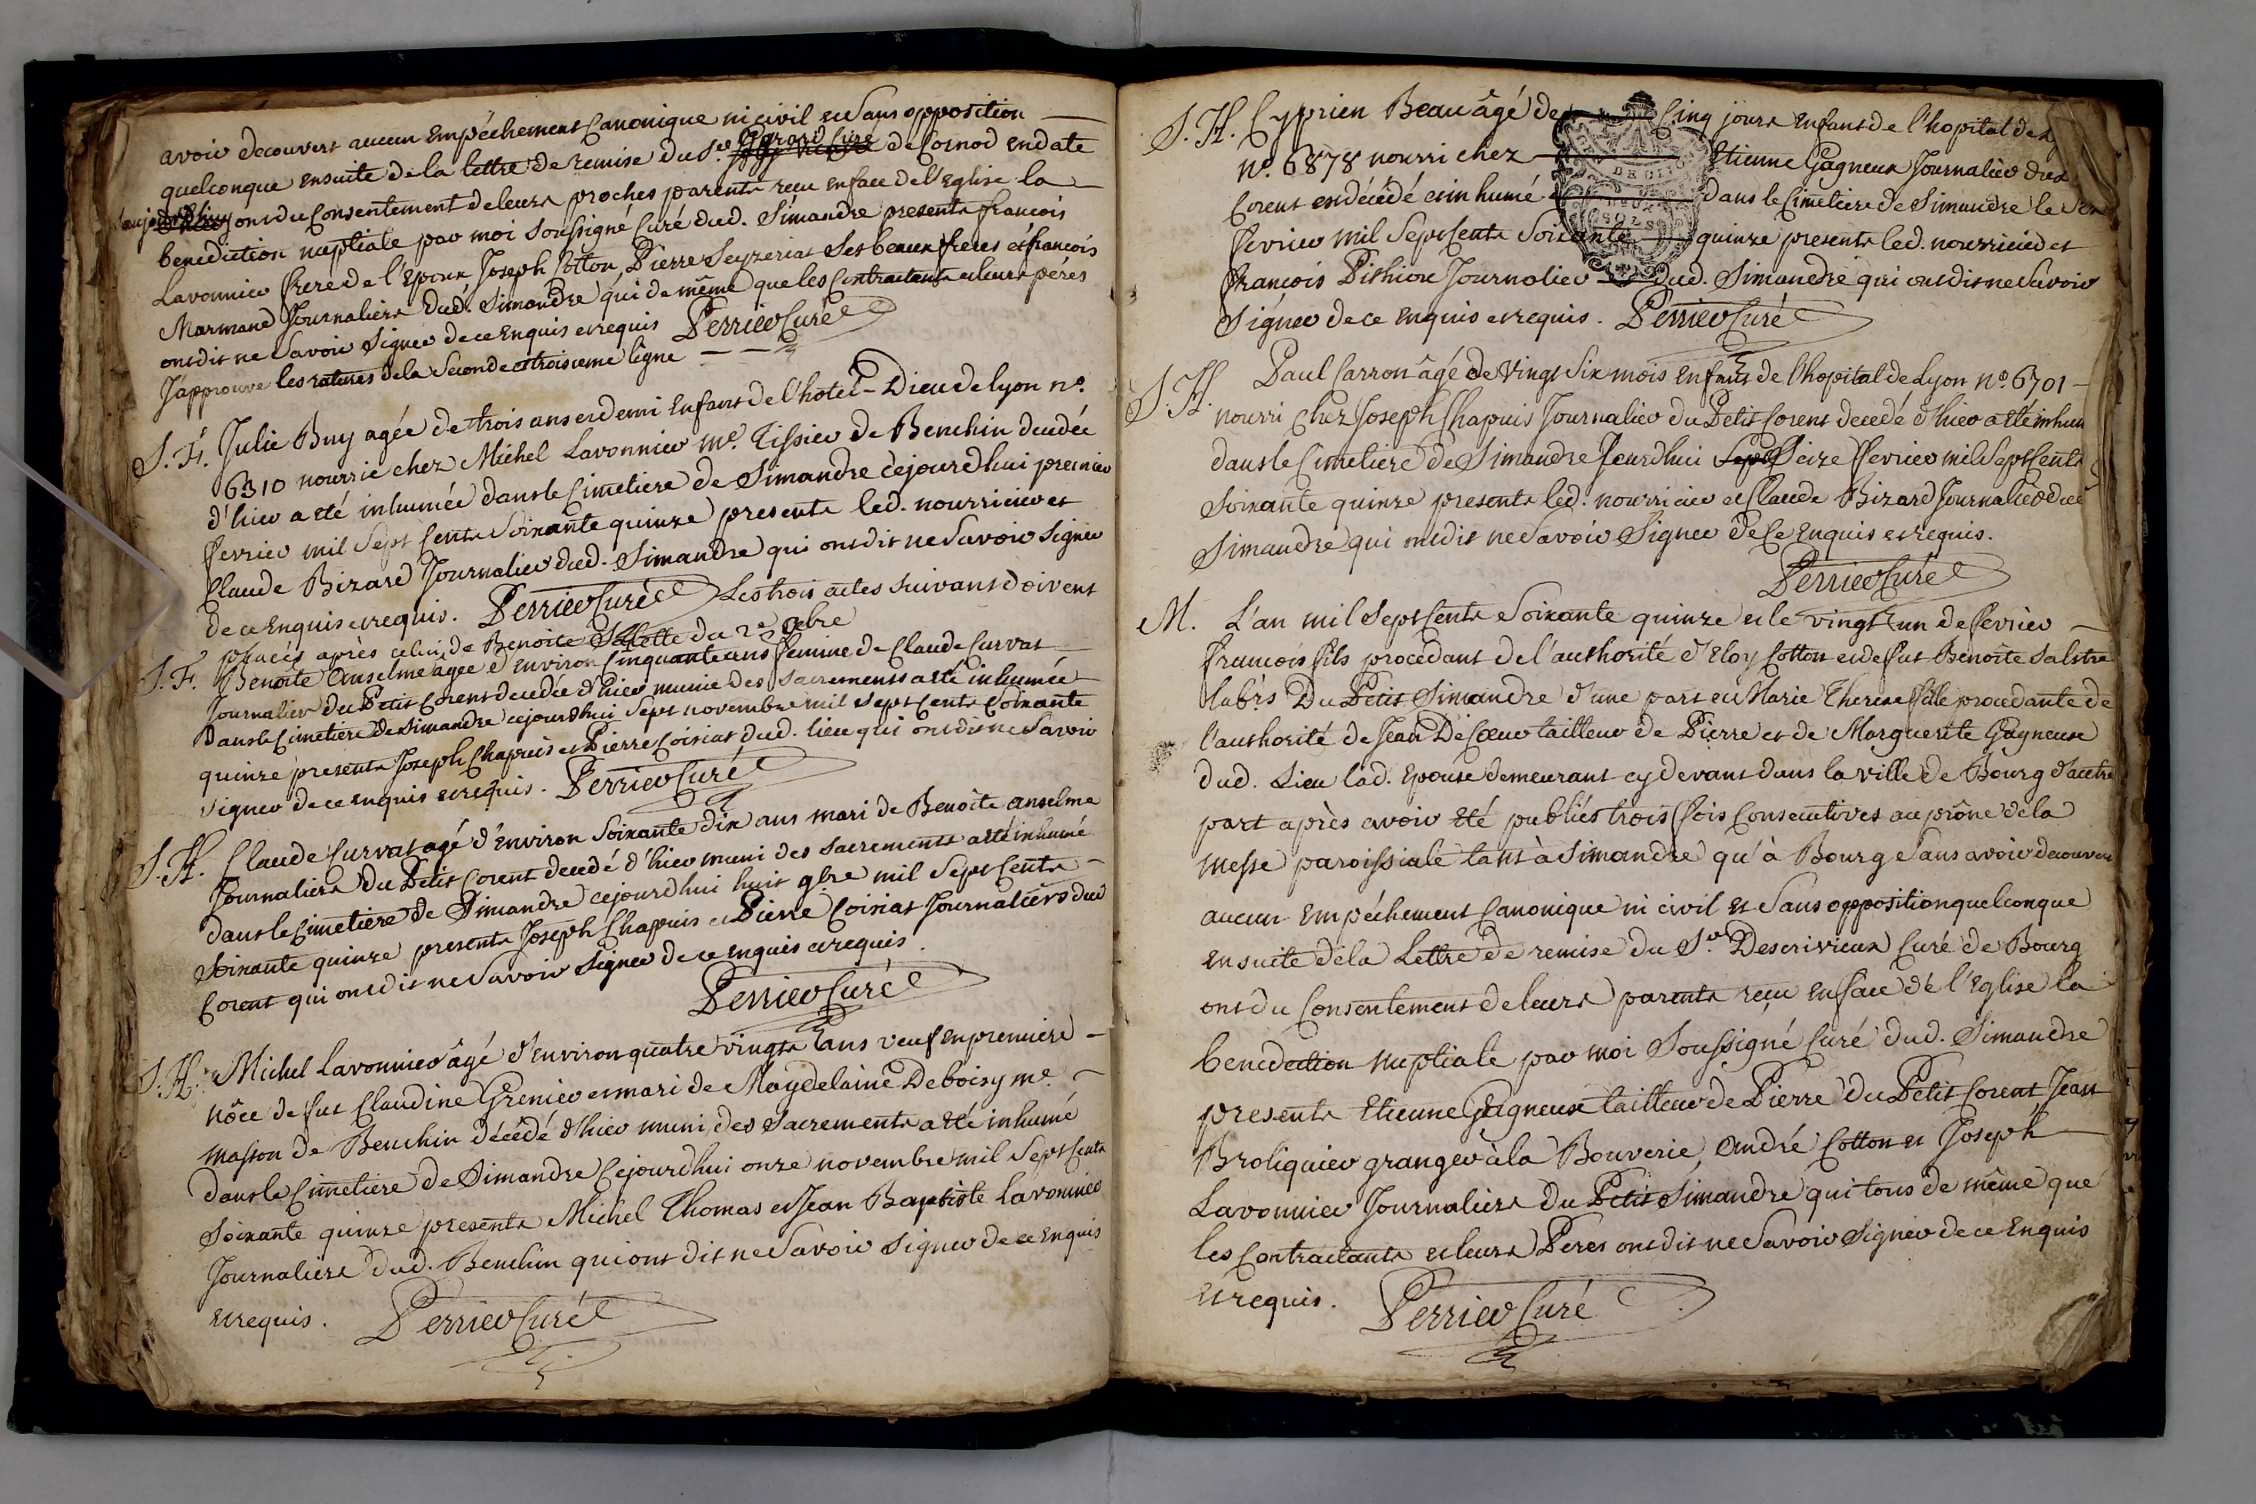 avoir decouvert aucun Empéchement Canonique ni civil et Sans opposition
quelconque ensuite de la lettre de remise du Sr. Curé de Cornod en date
ont du Consentement de leurs proches parents reçu en face de l'Eglise la
benediction nuptiale par moi Soussigné Curé dud. Simandre presents françois
Lavonnier frere de l'Epoux Joseph Cotton, Pierre Seyzeriat Ses beaux freres et françois
Marmand Journaliers dud. Simandre qui de même que les Contractants et leurs péres
ont dit ne Savoir Signer de ce Enquis et requis Perrier Curé
J'approuve les ratures de la Seconde et troisieme ligne
S. F. Julie Buy agée de trois ans et demi Enfant de l'hotel-Dieu de lyon no.
6310 nourrie chez Michel Lavonnier me. Tissier de Benchin decedée
d'hier a eté inhumée dans le Cimetiere de Simandre cejourdhui premier
fevrier mil Sept Cents Soixante quinze presents led. nourricier et
Claude Bizard Journalier dud. Simandre qui ont dit ne Savoir Signer
de ce Enquis et requis. Perrier Curé Les trois actes suivants doivent
placés après celui de Benoite du 2e 9bre
S. F. Benoite Anselme agée d'Environ Cinquante ans femme de Claude Curvat
Journalier du Petit Corent decedée d'hier munie des Sacrements a eté inhumée
Dans le Cimetiere de Simandre cejourdhui Sept novembre mil Sept Cents Soixante
quinze presents Joseph Chapuis et Pierre Coisiat dud. lieu qui ont dit ne Savoir
Signer de ce enquis et requis. Perrier Curé
S. H. Claude Curvat agé d'Environ Soixante dix ans mari de Benoite anselme
Journaliers du Petit Corent decedé d'hier muni des Sacrements a eté inhumé
dans le Cimetiere de Simandre cejourdhui huit 9bre mil Sept Cents
Soixante quinze presents Joseph Chapuis et Pierre Coisiat Journaliers dud
Corent qui ont dit ne Savoir Signer de ce enquis et requis.
Perrier Curé
S. H. Michel Lavonnier âgé d'Environ quatre vingts ans veuf en premiere
nôce de fut Claudine Grenier et mari de Maydelaine Deboisy me.
masson de Benchin décédé d'hier muni des Sacrements a eté inhumé
dans le Cimetiere de Simandre Cejourdhui onze novembre mil Sept Cents
Soixante quinze presents Michel Thomas et Jean Baptiste Lavonnier
Journaliers dud. Benchin qui ont dit ne Savoir Signer de ce Enquis
et requis. Perrier Curé
S. H. Cyprien Beau âgé de Cinq jours Enfant de l'hopital de
no. 6878 nourri chez Etienne Gagneux Journalier dud
Corent est décédé et inhumé dans le Cimetiere de Simandre le
fevrier mil Sept Cents Soixante quinze presents led. nourricier et
françois Journalier dud. Simandre qui ont dit ne Savoir
Signer de ce enquis et requis. Perrier Curé
S. H. Paul Carron âgé de Vingt Six mois Enfant de l'hopital de Lyon no. 6701
nourri Chez Joseph Chapuis Journalier du Petit Corent decedé d'hier a eté inhu
dans le Cimetiere de Simandre Jourdhui Seize fevrier mil Sept Cents
Soixante quinze presents led. nourricier et Claude Bizard Journalier dud
Simandre qui ont dit ne Savoir Signer de Ce Enquis et requis.
Perrier Curé
M. L'an mil Sept Cents Soixante quinze et le vingt un de fevrier
françois fils procedant de l'authorité d'Eloy Cotton et de fut Benoite
labrs Du Petit Simandre d'une part et Marie Therese fille procedante de
l'authorité de Jean De Cœur tailleur de Pierre et de Marguerite Gagneuse
dud. Lieu lad. Epouse demeurant cy devant dans la ville de Bourg d'autre
part après avoir eté publiés trois fois Consecutives au prône de la
messe paroissiale tant à Simandre qu'à Bourg Sans avoir decouvert
aucun Empéchement Canonique ni civil et Sans opposition quelconque
ensuite de la Lettre de remise du Sr. Descrivieux Curé de Bourg
ont du Consentement de leurs parents reçu en face de l'Eglise la
benediction nuptiale par moi Soussigné Curé dud. Simandre
presents Etienne Gagneux tailleur de Pierre du Petit Corent Jean
Broliquier granger à la Bouverie, André Cotton et Joseph
Lavonnier Journaliers du Petit Simandre qui tous de même que
les Contractants et leurs Peres ont dit ne Savoir Signer de ce Enquis
et requis. Perrier Curé